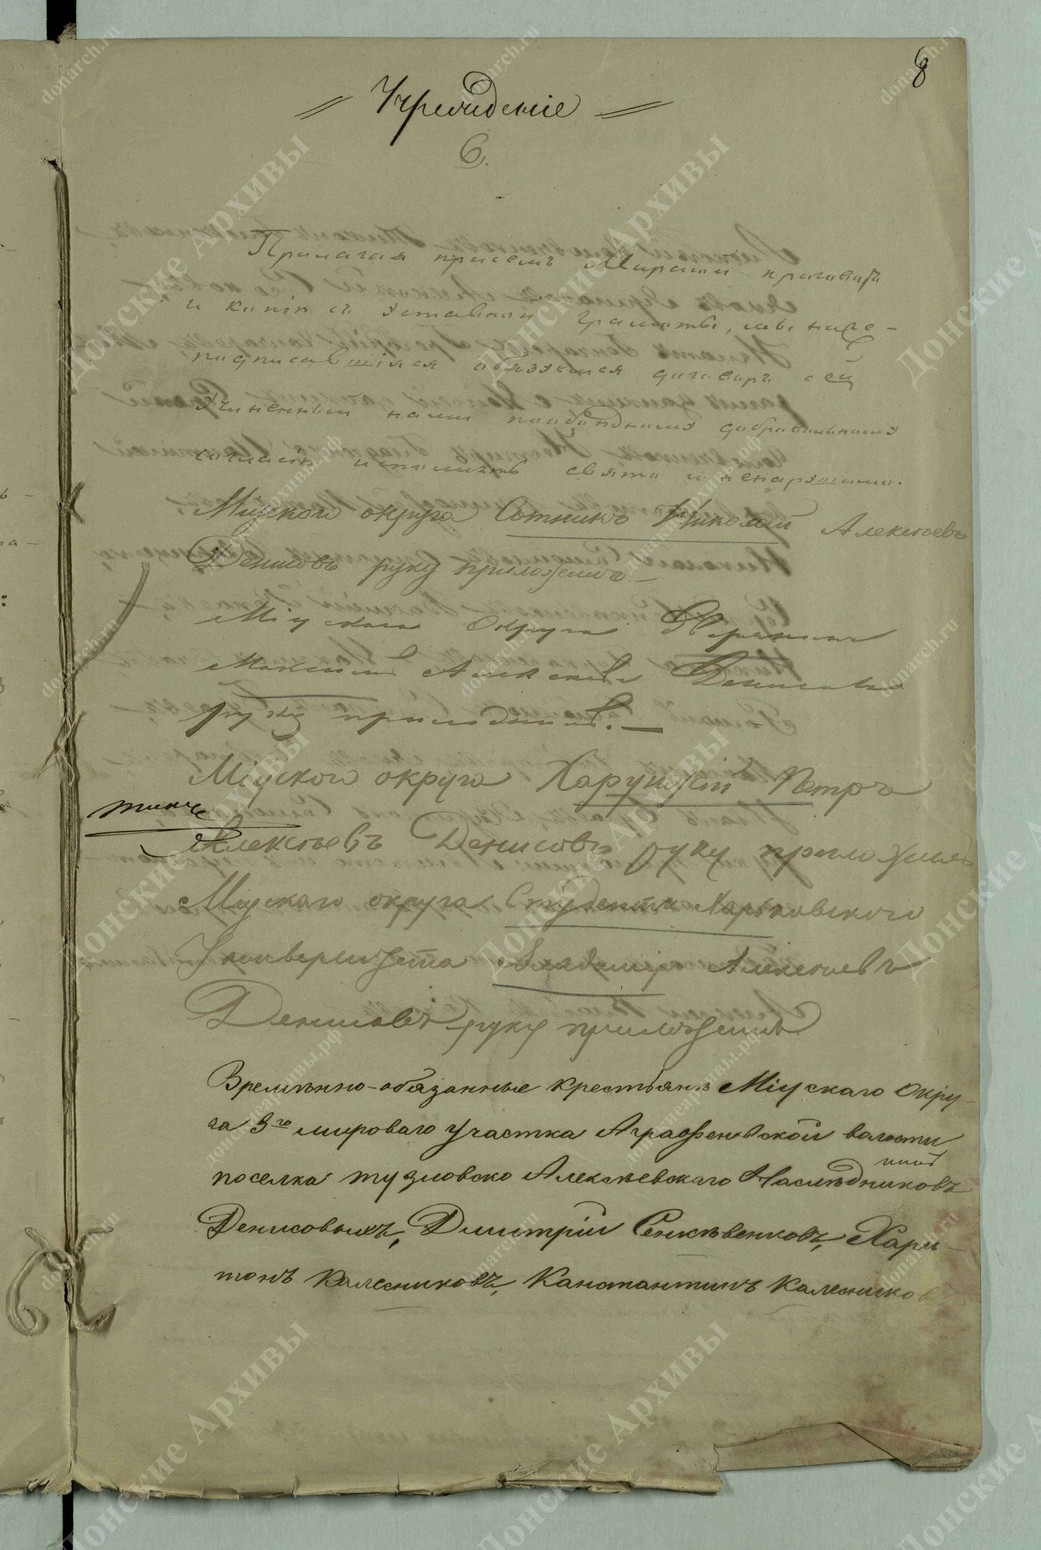 8
Учрежденіе
6.
Прилагая присемъ Мирской приговоръ
и копію съ уставной грамоты, мы ниже-
подписавшіяся обязуемся договоръ сей
учиненный нами пообоюдному добровольному
согласію исполнять свято и ненарушимо.
Міускои округа Сотникъ Николай Алексѣевъ
Денисовъ руку приложилъ
Міускаго Округа
Алексѣевъ Денисовъ
руку приложилъ. —
Міускои округа Харунжій Петръ
Алексѣевъ Денисовъ руку приложилъ
Міускаго округа Студентъ Харьковского
Университета Владимір Алексѣевъ
Денисовъ руку приложилъ
Временно-обязанные крестьянѣ Міускаго Окру-
га 3го мироваго участка Аграфеновской валости
поселка тузловско Алексѣевскаго Наслѣдниковъ
Денисовыхъ, Дмитрій Сенкѣвенковъ, Хари-
тонъ Калесниковъ, Канстантинъ Калесников
донские Архивы
donarch.ru
донскиеархивы.рф